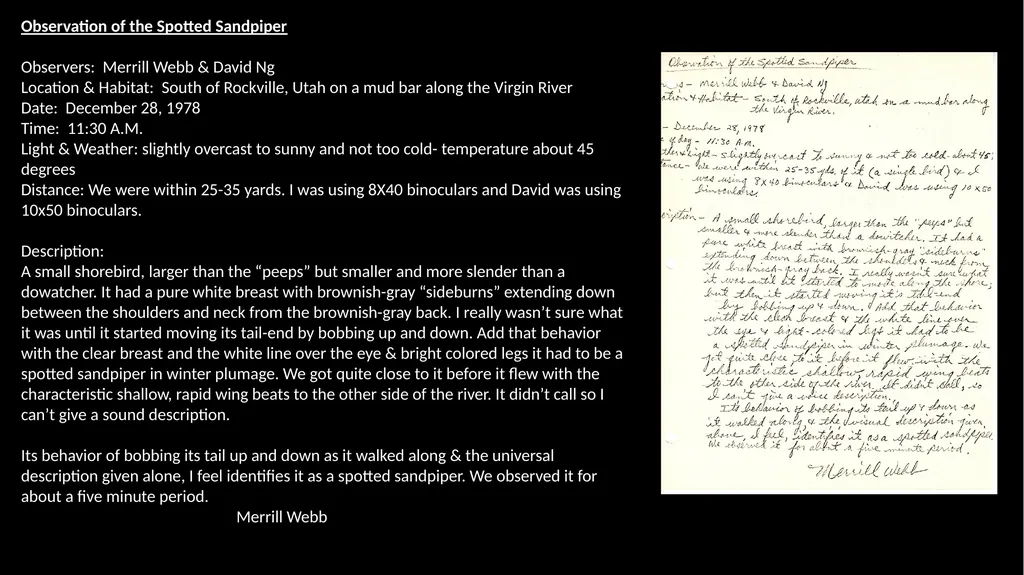 Observation of the Spotted Sandpiper
Observers: Merrill Webb & David Ng
Location & Habitat: South of Rockville, Utah on a mud bar along the Virgin River
Date: December 28, 1978
Time: 11:30 A.M.
Light & Weather: slightly overcast to sunny and not too cold- temperature about 45
degrees
Distance: We were within 25-35 yards. I was using 8X40 binoculars and David was using
10x50 binoculars.
Description:
A small shorebird, larger than the “peeps” but smaller and more slender than a
dowatcher. It had a pure white breast with brownish-gray “sideburns” extending down
between the shoulders and neck from the brownish-gray back. I really wasn’t sure what
it was until it started moving its tail-end by bobbing up and down. Add that behavior
with the clear breast and the white line over the eye & bright colored legs it had to be a
spotted sandpiper in winter plumage. We got quite close to it before it flew with the
characteristic shallow, rapid wing beats to the other side of the river. It didn’t call so I
can’t give a sound description.
Its behavior of bobbing its tail up and down as it walked along & the universal
description given alone, I feel identifies it as a spotted sandpiper. We observed it for
about a five minute period.
Merrill Webb
Observation of the Spotted Sandpiper
- Merrill Webb & David Ng
& Habitat - South of Rockville, Utah on a mud bar along
the Virgin River.
- December 28, 1978
of day - 11:30 A.M.
& Light - Slightly overcast to sunny & not too cold - about 45°
- We were within 25-35 yds. of it (a single bird) & I
was using 8X40 binoculars & David was using 10x50
binoculars.
- A small shorebird, larger than the "peeps" but
smaller & more slender than a dowitcher. It had a
pure white breast with brownish-gray "sideburns"
extending down between the shoulders & neck from
the brownish-gray back. I really wasn't sure what
it was until it started to move along the shore,
but then it started moving it's tail-end
by bobbing up & down. Add that behavior
with the clear breast & the white line over
the eye & light-colored legs it had to be
a spotted sandpiper in winter plumage. We
got quite close to it before it flew with the
characteristic shallow, rapid wing beats
to the other side of the river. It didn't call, so
I can't give a voice description.
Its behavior of bobbing its tail up & down as
it walked along & the visual description given
above, I feel, identifies it as a spotted sandpiper.
We observed it for about a five minute period.
Merrill Webb